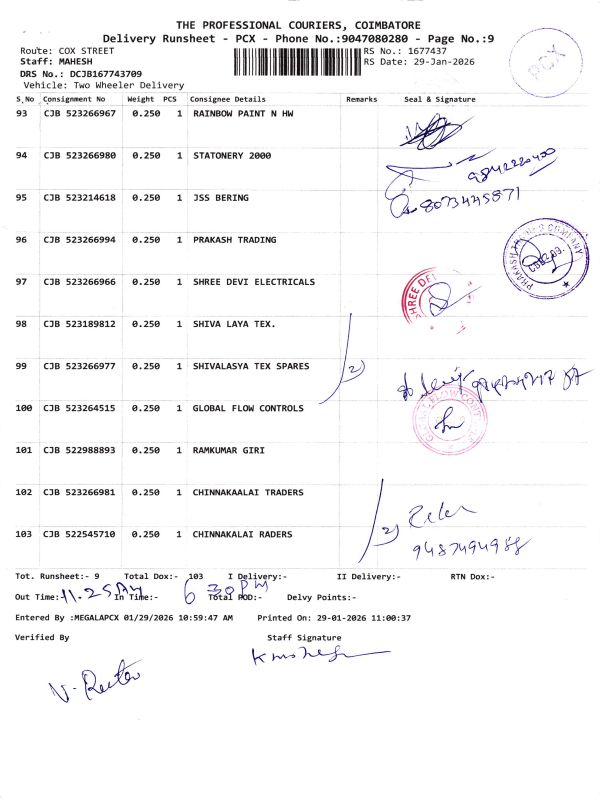 THE PROFESSIONAL COURIERS, COIMBATORE
Delivery Runsheet - PCX - Phone No.:9047080280 - Page No.:9
Route: COX STREET RS No.: 1677437
Staff: MAHESH RS Date: 29-Jan-2026
DRS No.: DCJB167743709
Vehicle: Two Wheeler Delivery
PCX
S.No Consignment No Weight PCS Consignee Details Remarks Seal & Signature
93 CJB 523266967 0.250 1 RAINBOW PAINT N HW
94 CJB 523266980 0.250 1 STATONERY 2000 9842220400
95 CJB 523214618 0.250 1 JSS BERING 8073445871
96 CJB 523266994 0.250 1 PRAKASH TRADING
97 CJB 523266966 0.250 1 SHREE DEVI ELECTRICALS SHREE DE
98 CJB 523189812 0.250 1 SHIVA LAYA TEX.
99 CJB 523266977 0.250 1 SHIVALASYA TEX SPARES 2)
100 CJB 523264515 0.250 1 GLOBAL FLOW CONTROLS
101 CJB 522988893 0.250 1 RAMKUMAR GIRI
102 CJB 523266981 0.250 1 CHINNAKAALAI TRADERS
103 CJB 522545710 0.250 1 CHINNAKALAI RADERS 2) 9487494988
Tot. Runsheet:- 9 Total Dox:- 103 I Delivery:- II Delivery:- RTN Dox:-
Out Time:- 11.25AM In Time:- 6 30 PM Total POD:- Delvy Points:-
Entered By :MEGALAPCX 01/29/2026 10:59:47 AM Printed On: 29-01-2026 11:00:37
Verified By Staff Signature